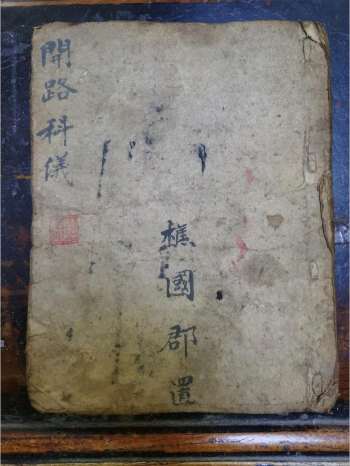 開路科儀
樵國郡置